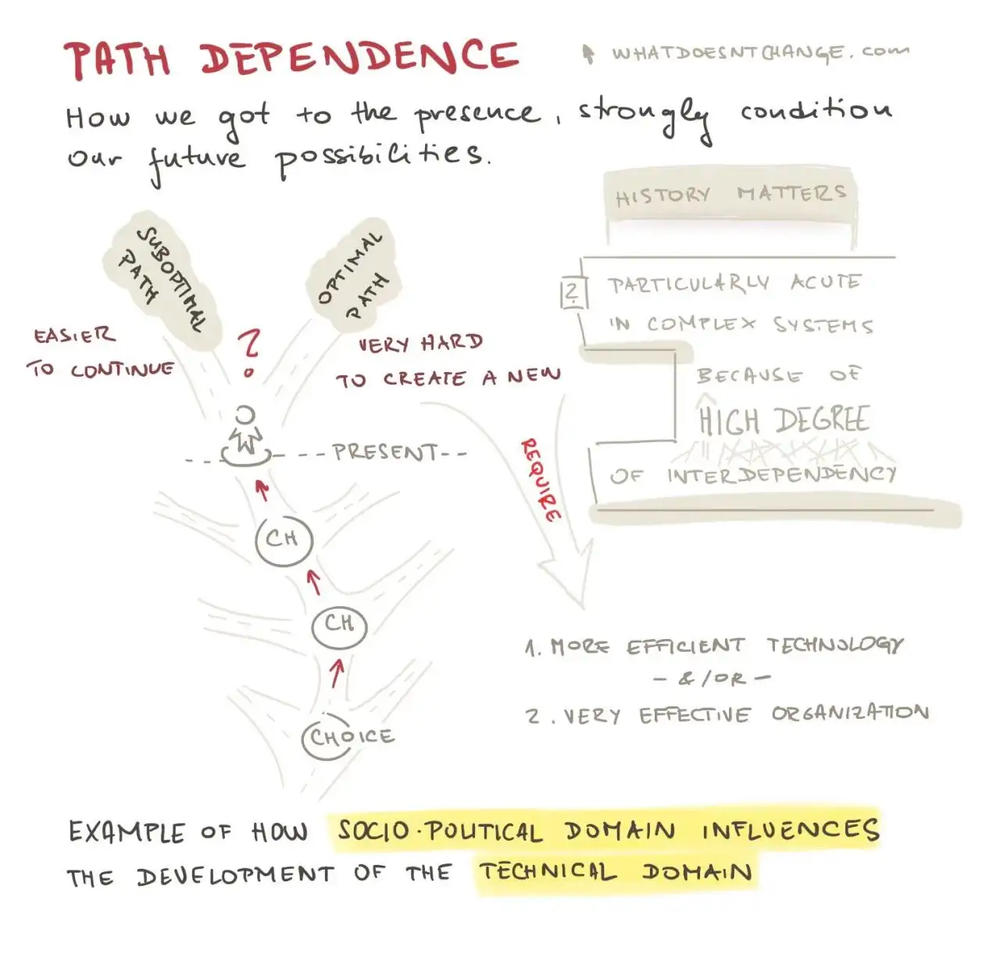 PATH DEPENDENCE
WHATDOESNTCHANGE.com
How we got to the presence, strongly condition
our future possibilities.
HISTORY MATTERS
2
PARTICULARLY ACUTE
IN COMPLEX SYSTEMS
BECAUSE OF
HIGH DEGREE
OF INTERDEPENDENCY
SUBOPTIMAL
PATH
OPTIMAL
PATH
EASIER
TO CONTINUE
?
VERY HARD
TO CREATE A NEW
PRESENT
REQUIRE
CH
CH
CHOICE
1. MORE EFFICIENT TECHNOLOGY
- & / OR -
2. VERY EFFECTIVE ORGANIZATION
EXAMPLE OF HOW SOCIO-POLITICAL DOMAIN INFLUENCES
THE DEVELOPMENT OF THE TECHNICAL DOMAIN